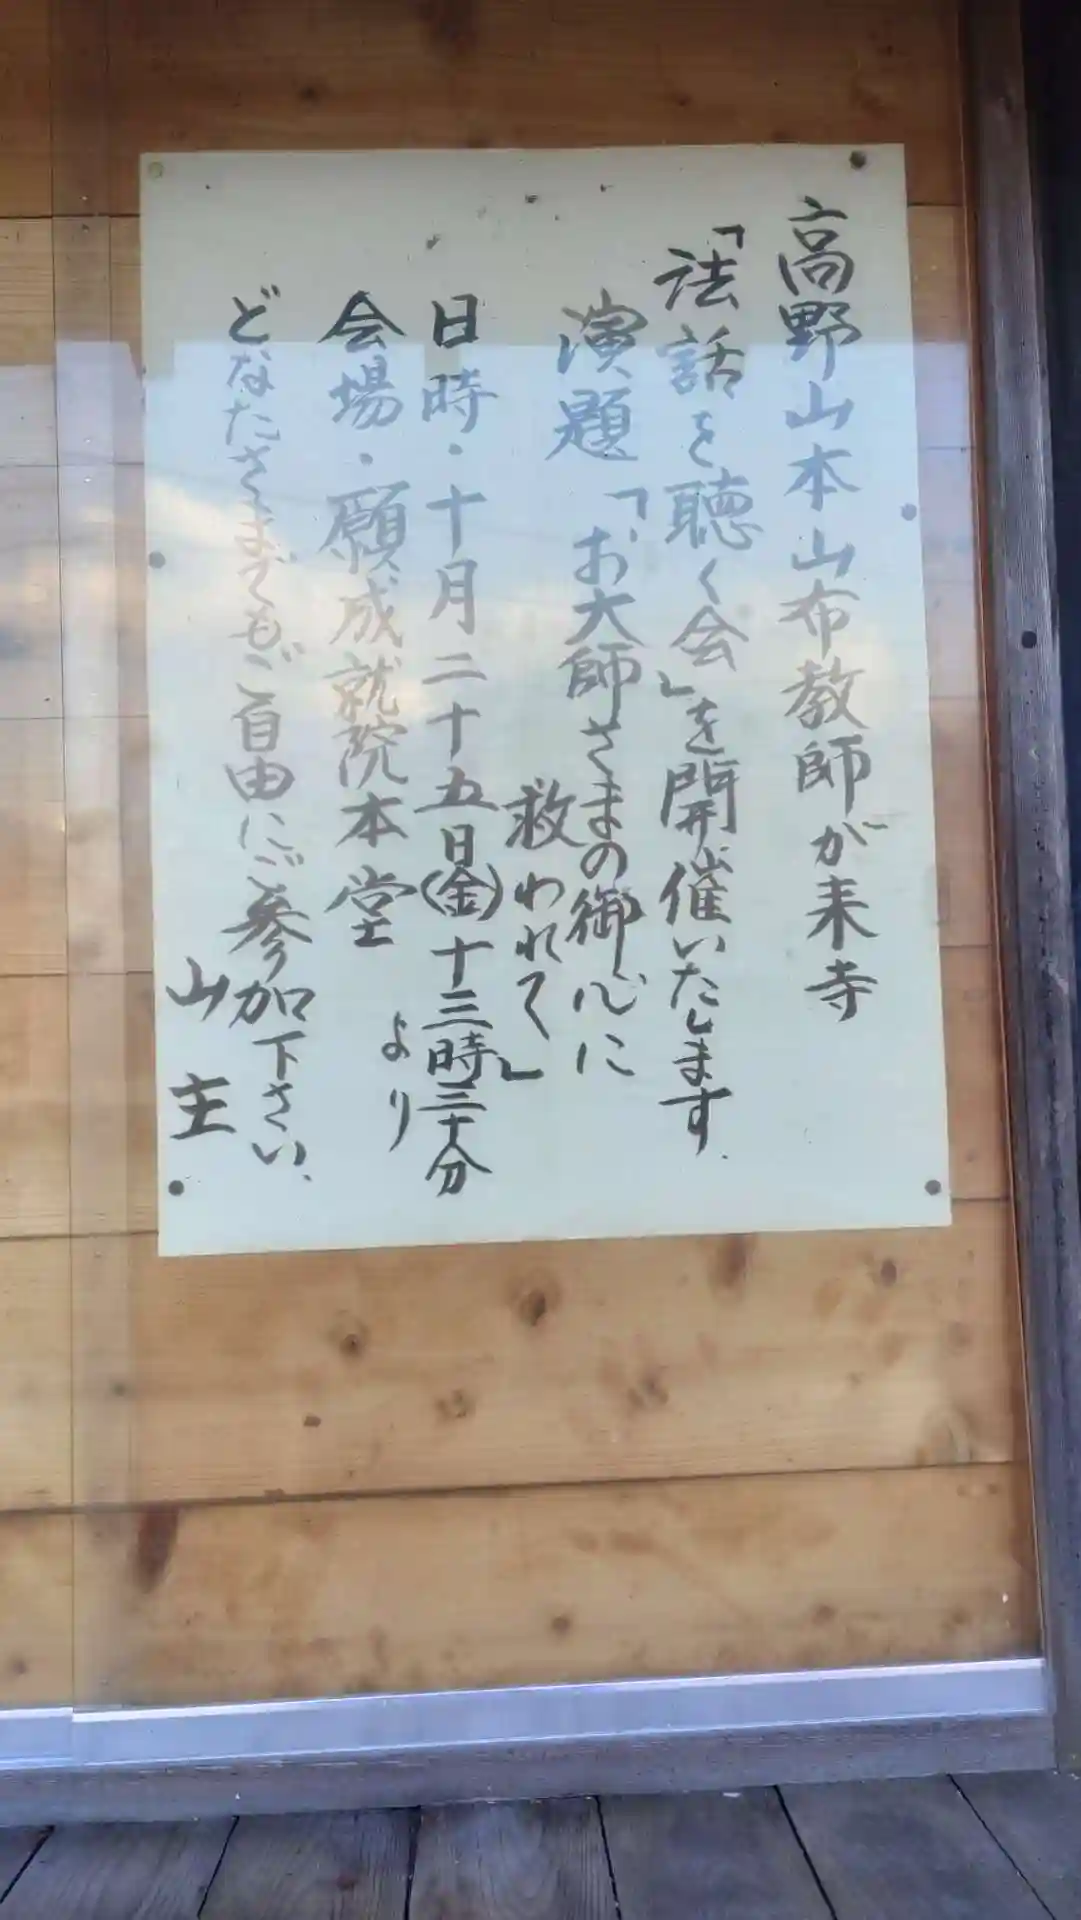 高野山本山布教師が来寺
「法話を聴く会」を開催いたします.
演題「お大師さまの御心に
救われて」
日時・十月二十五日(金)十三時三十分
より
会場・願成就院本堂
どなたさまでもご自由にご参加下さい.
山主